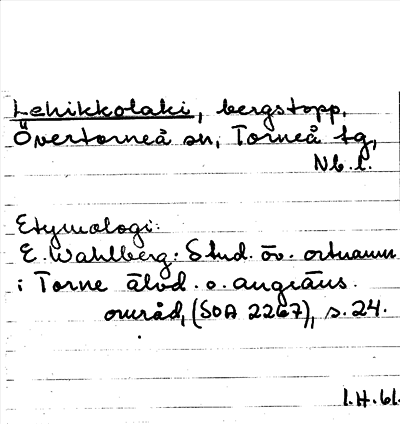 Lehikkolaki, bergstopp,
Övertorneå sn, Torneå tg,
Nb. l.
Etymologi:
E. Wahlberg: Stud. öv. ortnamn
i Torne älvd. o. angräns.
område, (SOA 2267), s. 24.
I.H. 61.